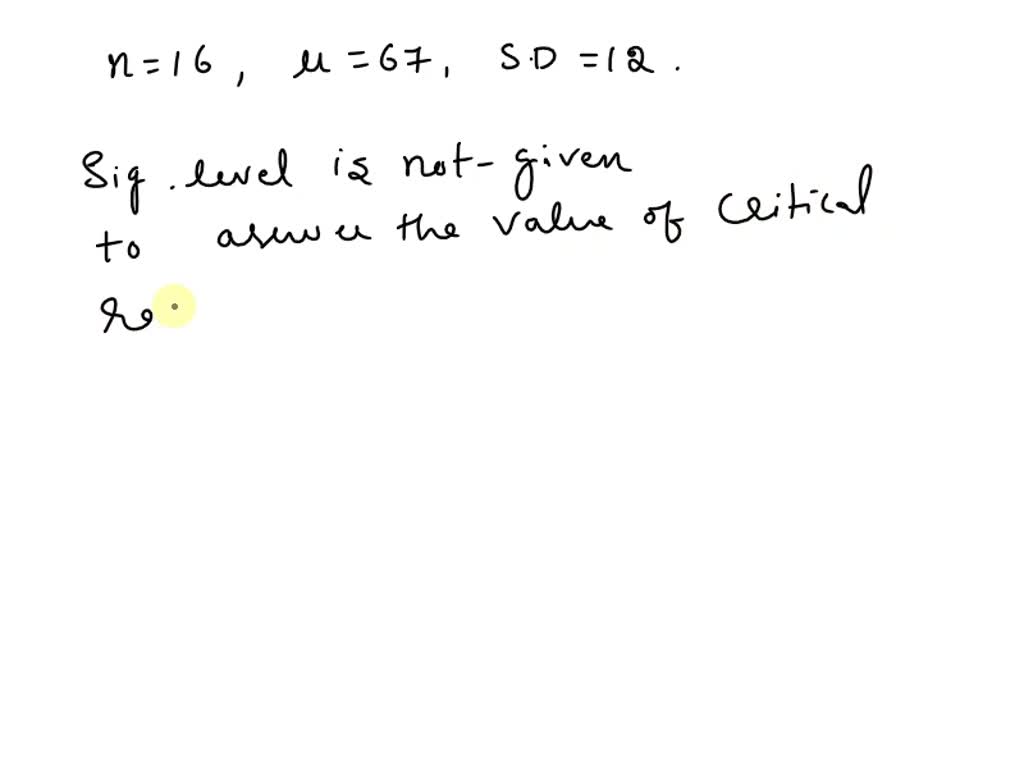 n=16, μ=67, S.D=12.
Sig. level is not-given
to the value of critical